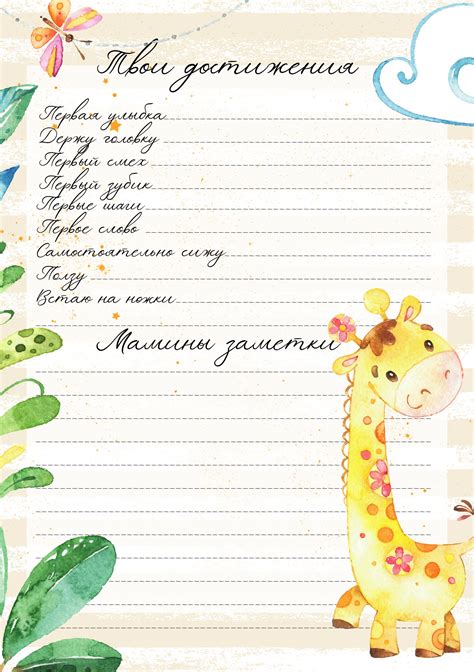 Твои достижения
Первая улыбка
Держу головку
Первый смех
Первый зубик
Первые шаги
Первое слово
Самостоятельно сижу
Ползу
Встаю на ножки
Мамины заметки